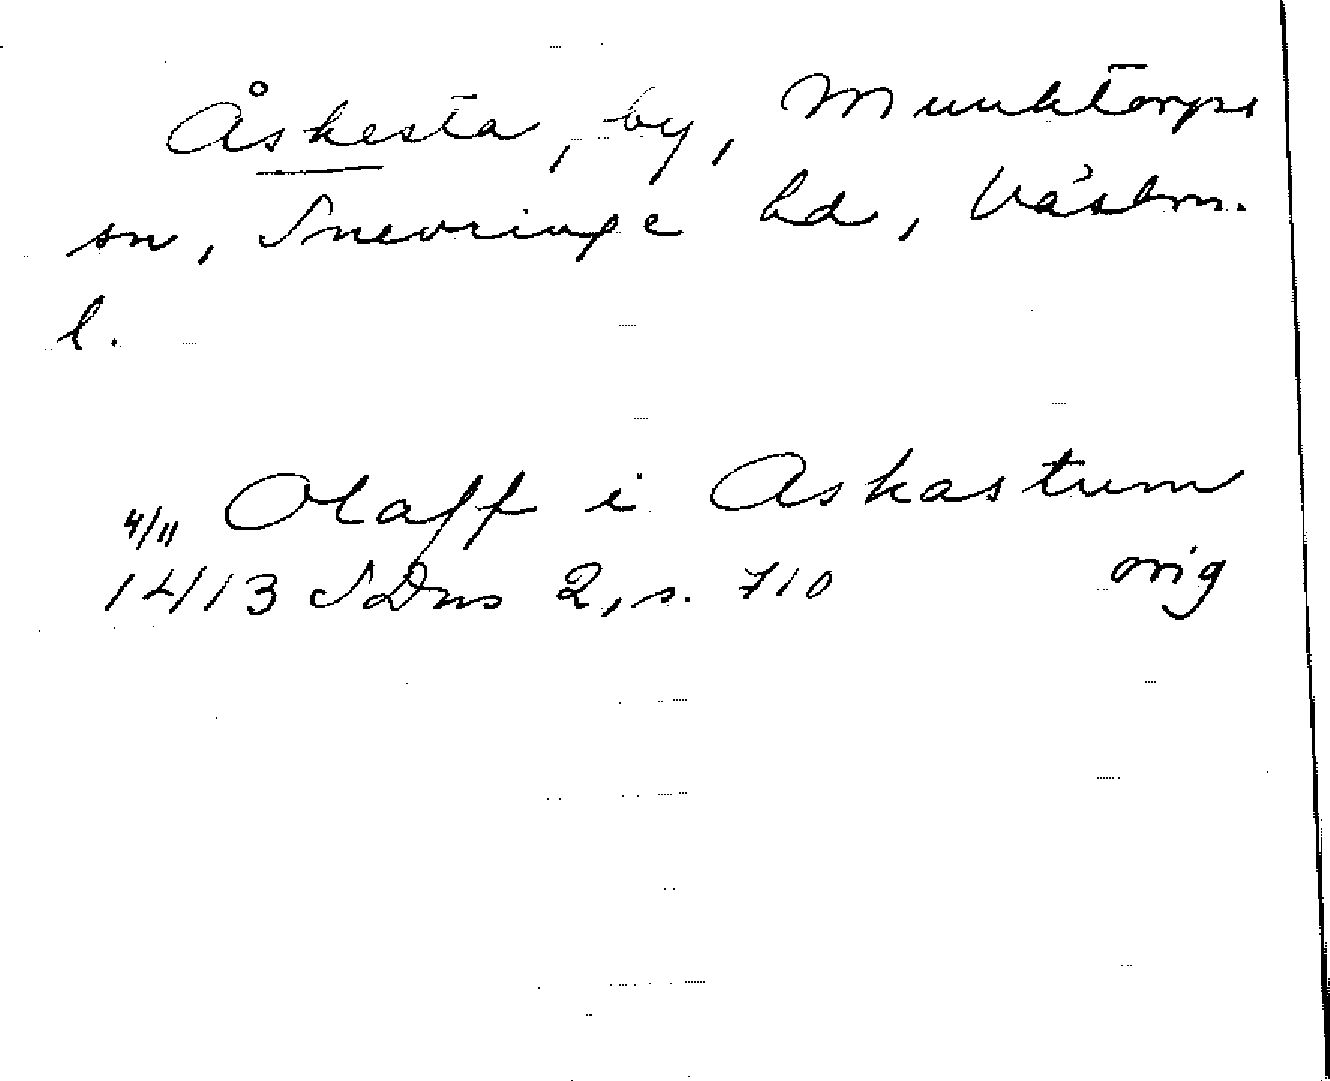 Åskesta, by, Munktorps
sn, Snevringe hd, Västm.
l.
4/11 Olaff i Askastum
1413 SDns 2, s. 710 orig